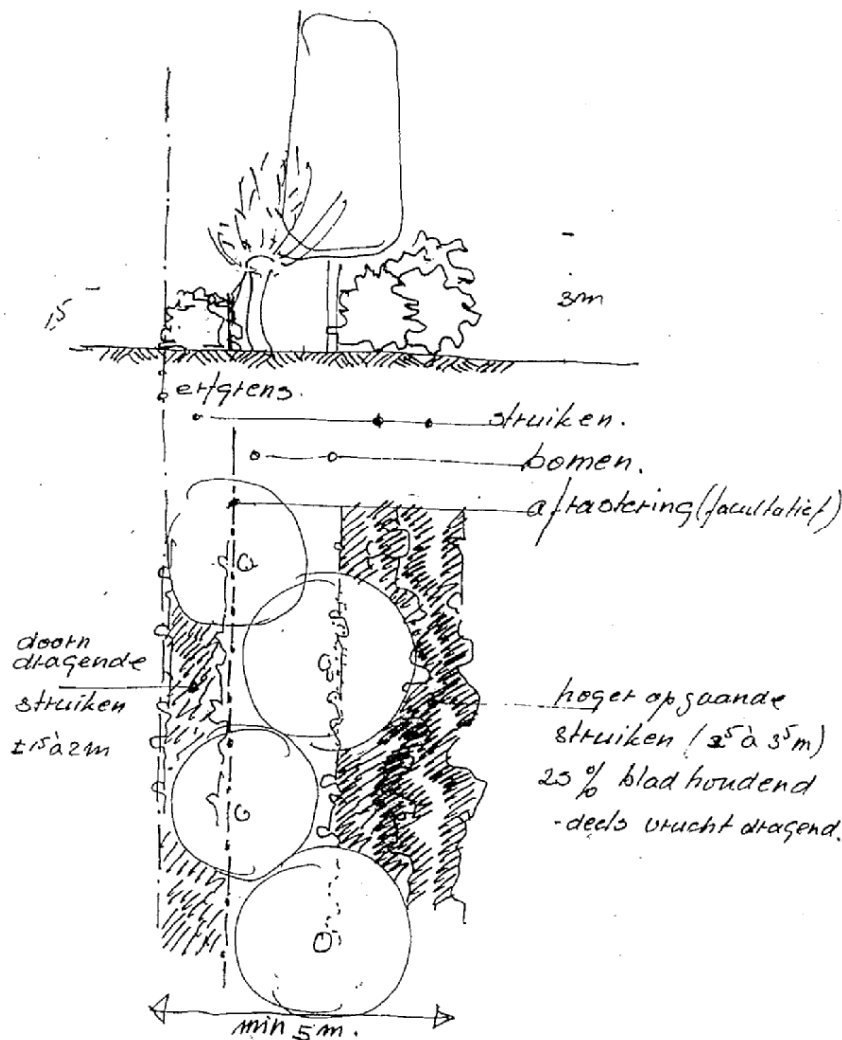 1,5
3m
erfgrens.
struiken.
bomen.
afrastering (facultatief)
doorn
dragende
struiken
± 1⁵ à 2m
hoger opgaande
struiken (2⁵ à 3⁵m)
25 % blad houdend
-deels vrucht dragend.
min 5 m.